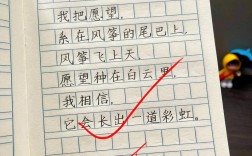 我把愿望，
系在风筝的尾巴上，
风筝飞上天，
愿望种在白云里，
我相信，
它会长出一道彩虹。